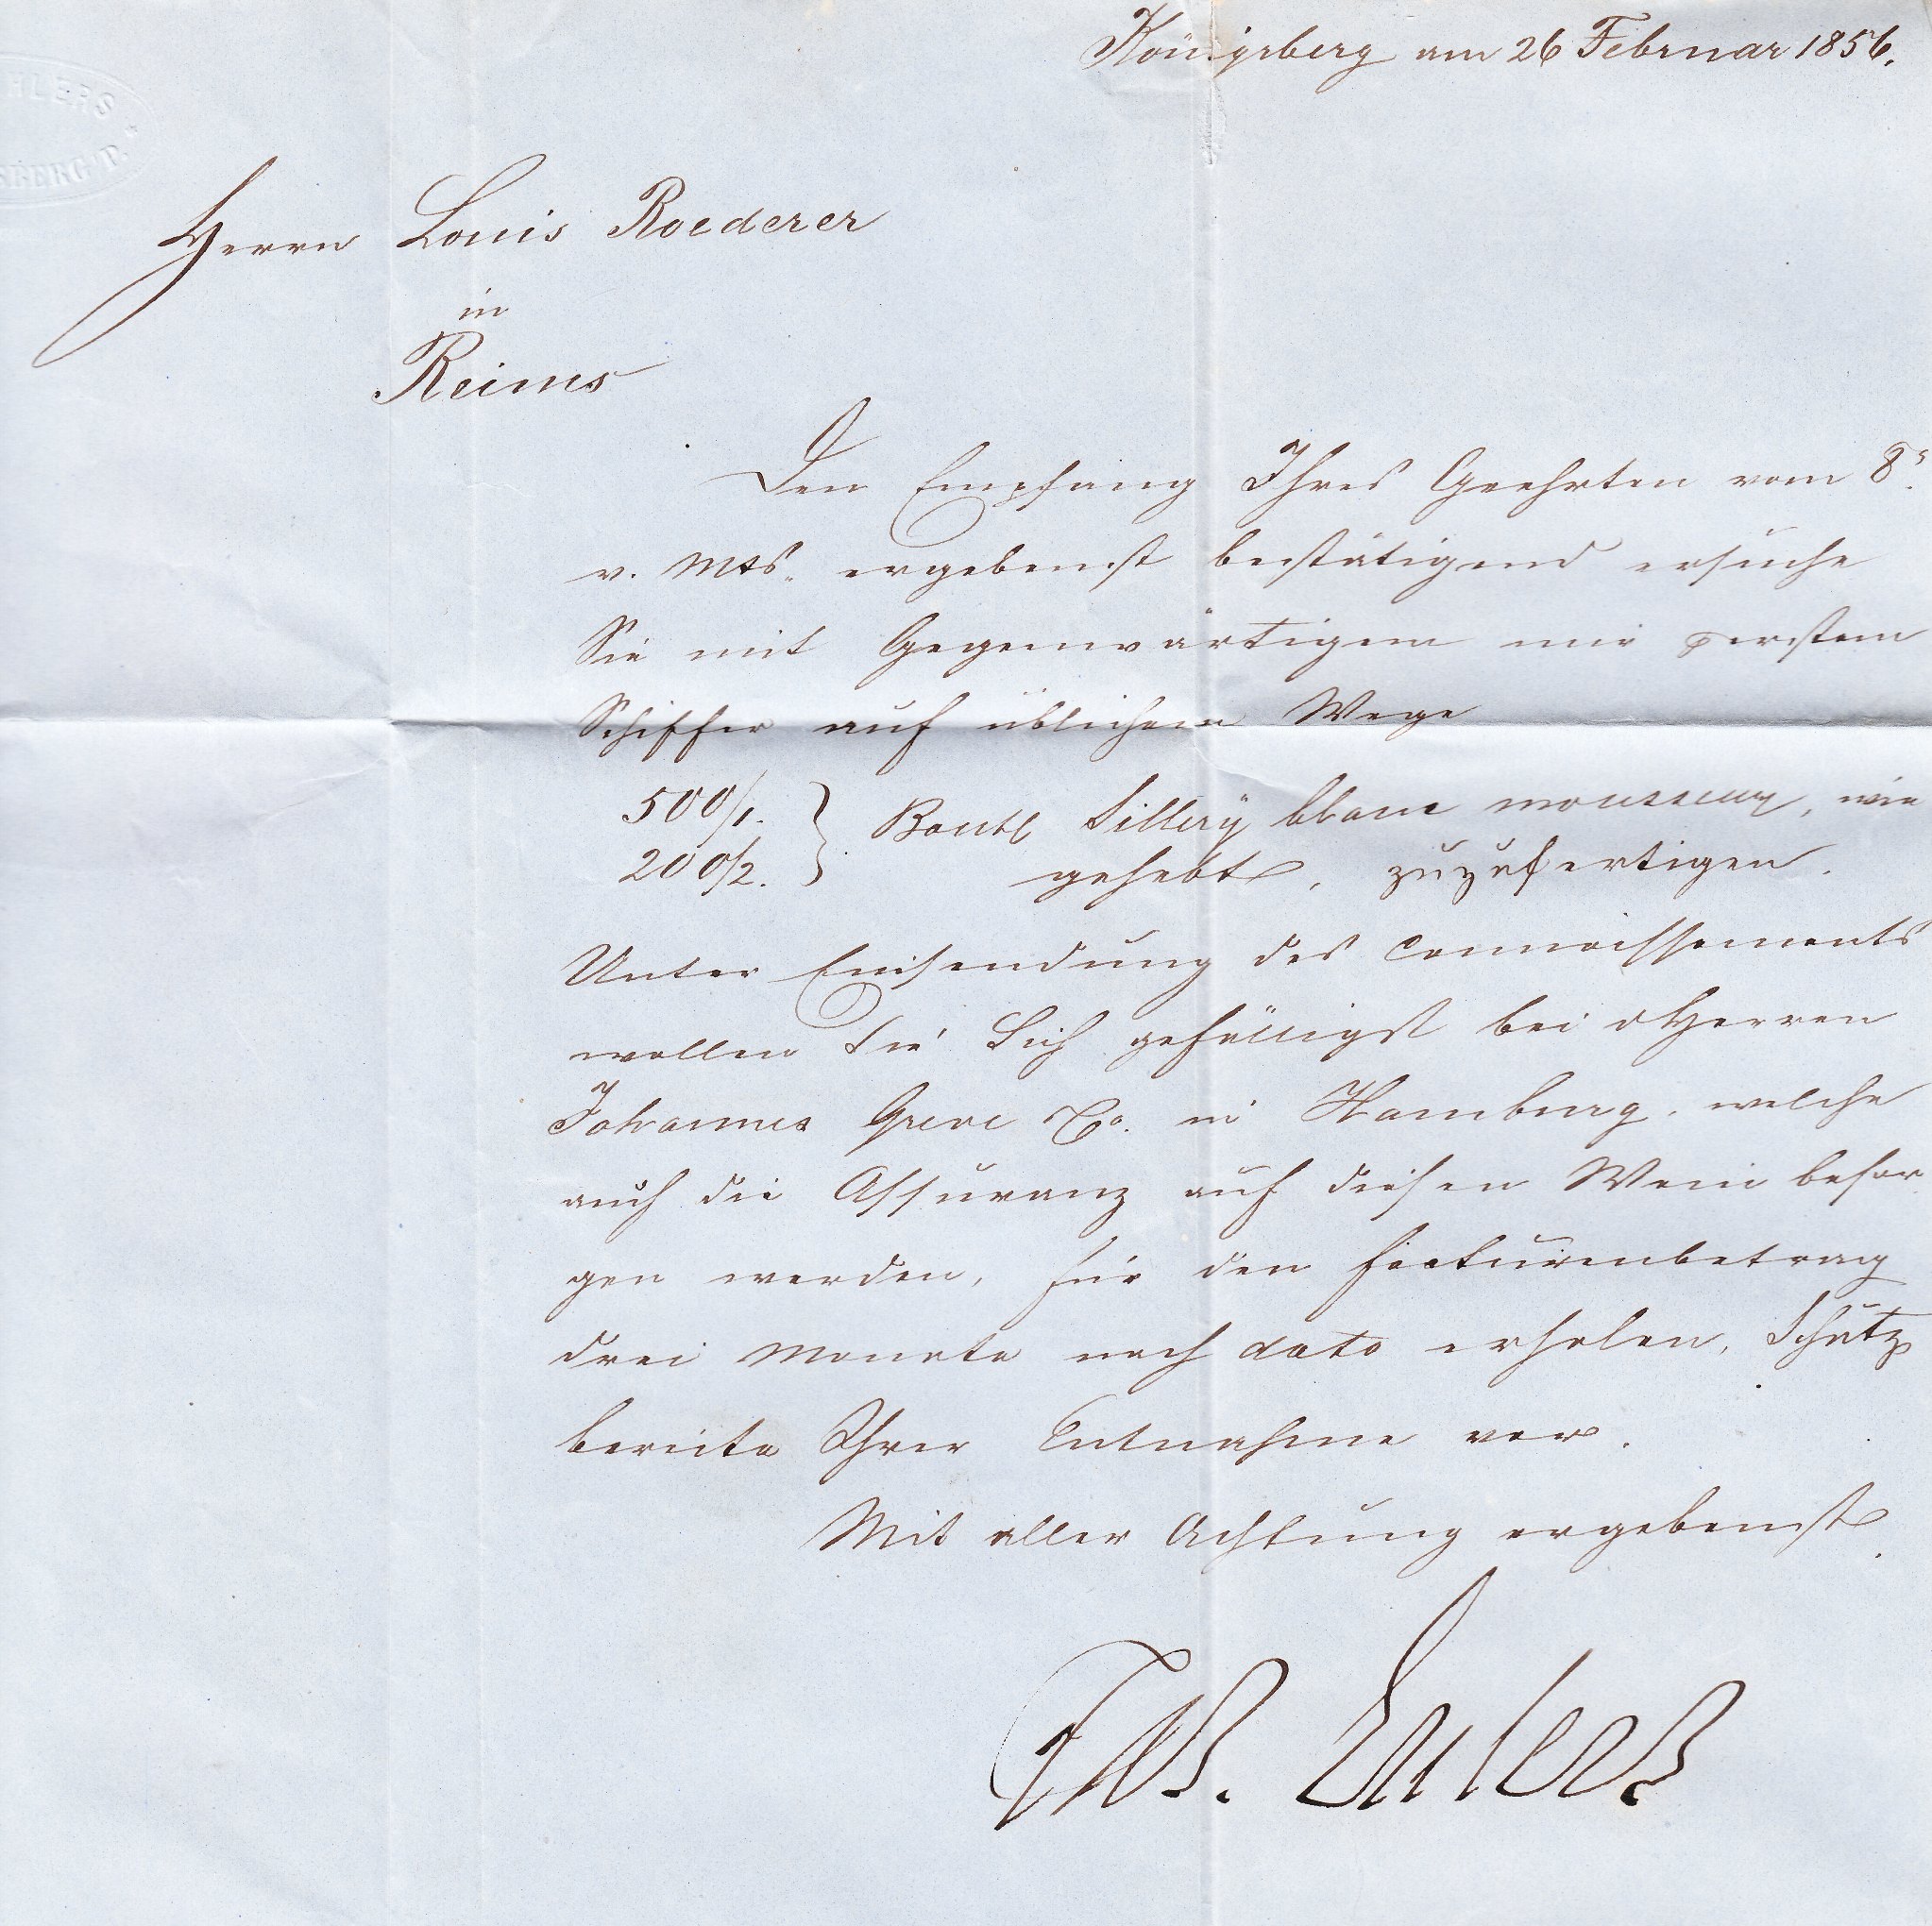 HLERS
SBERG P.
Königsberg am 26 Februar 1856.
Herrn Louis Roederer
in
Reims
Den Empfang Ihres Geehrten vom 8.
v. Mts. ergebenst bestätigend ersuche
Sie mit Gegenwärtigem mir p erstem
Schiffer auf üblichem Wege
500/1. } Boutl Sillery blanc mousseux, wie
200/2. } gehabt, zuzufertigen.
Unter Einsendung des Connoissements
wollen Sie Sich gefälligst bei d Herren
Johannes Greve & Co. in Hamburg, welche
auch die Assuranz auf diesen Wein besor
gen werden, für den Facturenbetrag
drei Monate nach dato erholen, Schutz
bereite Ihrer Entnahme vor.
Mit aller Achtung ergebenst